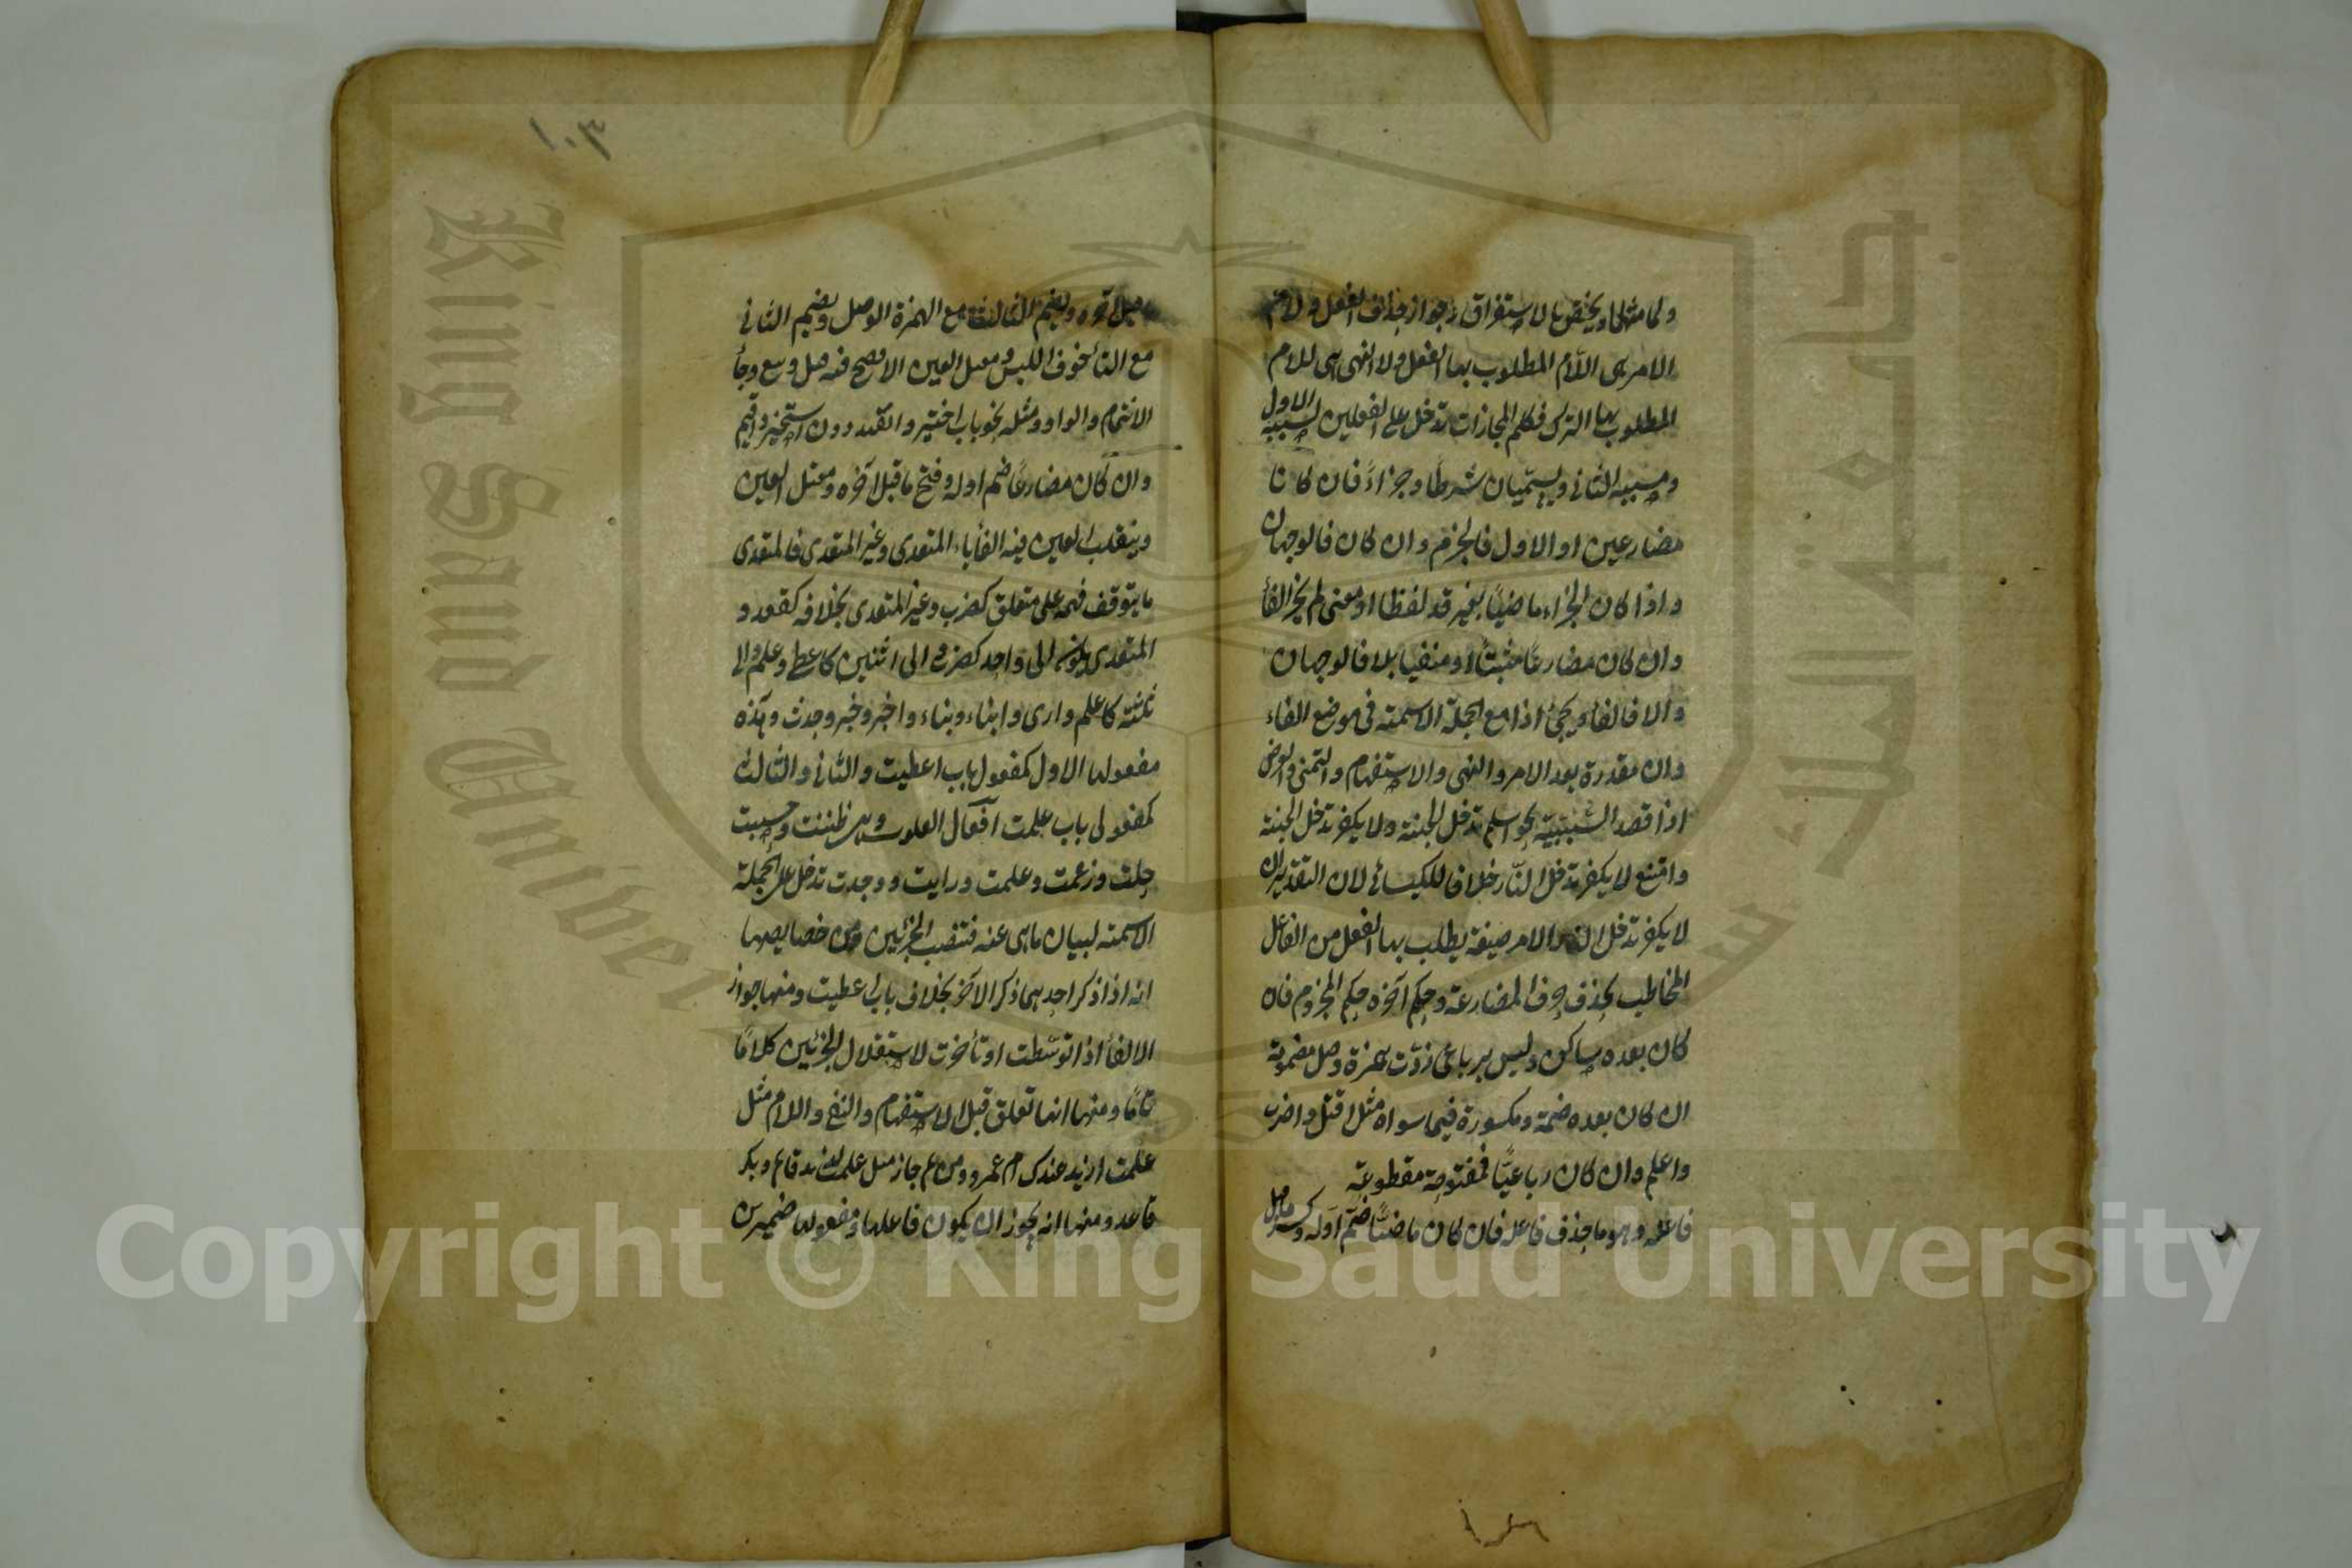 ولما مثلها ويختص بالاستغراق وجواز حذف الفعل ولام
الامر هى اللام المطلوب بها الفعل ولا النهى هى للام
المطلوب بها الترك فكلم المجازات تدخل على الفعلين لسببيه الاول
ومسببيه الثانى ويسميان شرطا وجزاءً فان كانا
مضارعين او الاول فالجزم وان كان فالوجهان
واذا كان الجزاء ماضيًا بغير قد لفظا او معنى لم يجز الفأ
وان كان مضارعًا مثبتًا او منفيا بلا فالوجهان
والا فالفأ ويجئ اذا مع الجملة الاسمية فى موضع الفاء
وان مقدرة بعد الامر والنهى والاستفهام والتمنى والعرض
اذا قصد السببية نحو اسلم تدخل الجنة ولا تكفر تدخل الجنة
وامتنع لا تكفر تدخل النّار خلافا للكسائى لان التقدير ان
لا يكفر تدخل النار والامر صيغة يطلب بها الفعل من الفاعل
المخاطب بحذف حرف المضارعة وحكم آخره حكم المجزوم فان
كان بعده ساكن وليس برباعى زدت همزة وصل مضمومة
ان كان بعده ضمة ومكسورة فيما سواه مثل اقتل واضرب
واعلم وان كان رباعيًّا فمفتوحة مقطوعة
فاعله وهو ما حذف فاعله فان كان ماضيًّا ضمّ اوله وكسر ماقبل
ماقبل آخره ويضم الثالث مع الهمزة الوصل ويضم الثانى
مع التأ خوف اللبس ومعتل العين الافصح فيه قيل وبيع وجأ
الاشمام والواو ومثله نحو باب اختير وانقيد دون استخير واقيم
وان كان مضارعًا ضم اوله وفتح ماقبل آخره ومعتل العين
وينقلب العين فيه الفا باء المتعدى وغير المتعدى فالمتعدى
ما يتوقف فهمه على متعلق كضرب وغير المتعدى بخلافه كقعد و
المتعدى يكون الى واحد كضرب والى اثنين كاعطى وعلم والى
ثلثة كاعلم وارى وانباء ونباء واخبر وخبر وحدث وهذه
مفعولها الاول كمفعول باب اعطيت والثانى والثالث
كمفعولى باب علمت افعال القلوب وهى ظننت وحسبت
خلت وزعمت وعلمت ورايت ووجدت تدخل على الجملة
الاسمية لبيان ماهى عنه فتنصب الجزئين ومن خصايصها
انه اذا ذكر احدهما ذكر الآخر بخلاف باب اعطيت ومنها جواز
الالغأ اذا توسّطت او تأخرت لاستقلال الجزئين كلامًا
تامًا ومنها انها تعلق قبل الاستفهام والنفى واللام مثل
علمت ازيد عندك ام عمرو ومن ثم جاز مثل علمت لزيد قائم وبكر
قاعد ومنها انه يجوز ان يكون فاعلها ومفعولها ضميرين
١٠٣
King Saud Univer
Copyright © King Saud University